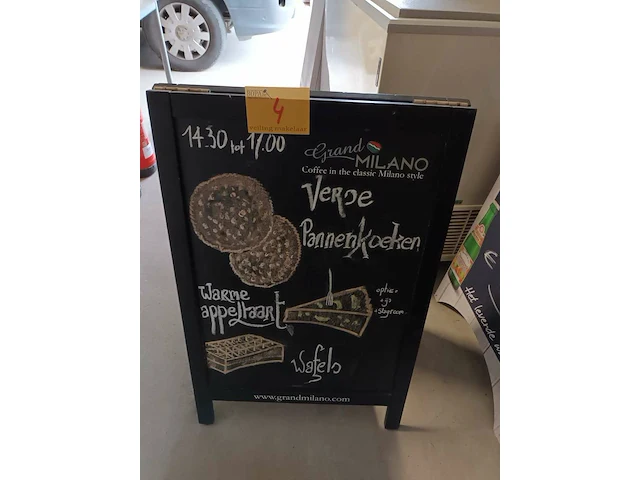 4
veiling makelaar
14.30 tot 17.00
Grand
MILANO
Coffee in the classic Milano style
Verse
Pannenkoeken
Warme
appeltaart
optie:
+ ijs
+ slagroom
Wafels
www.grandmilano.com
Het levende